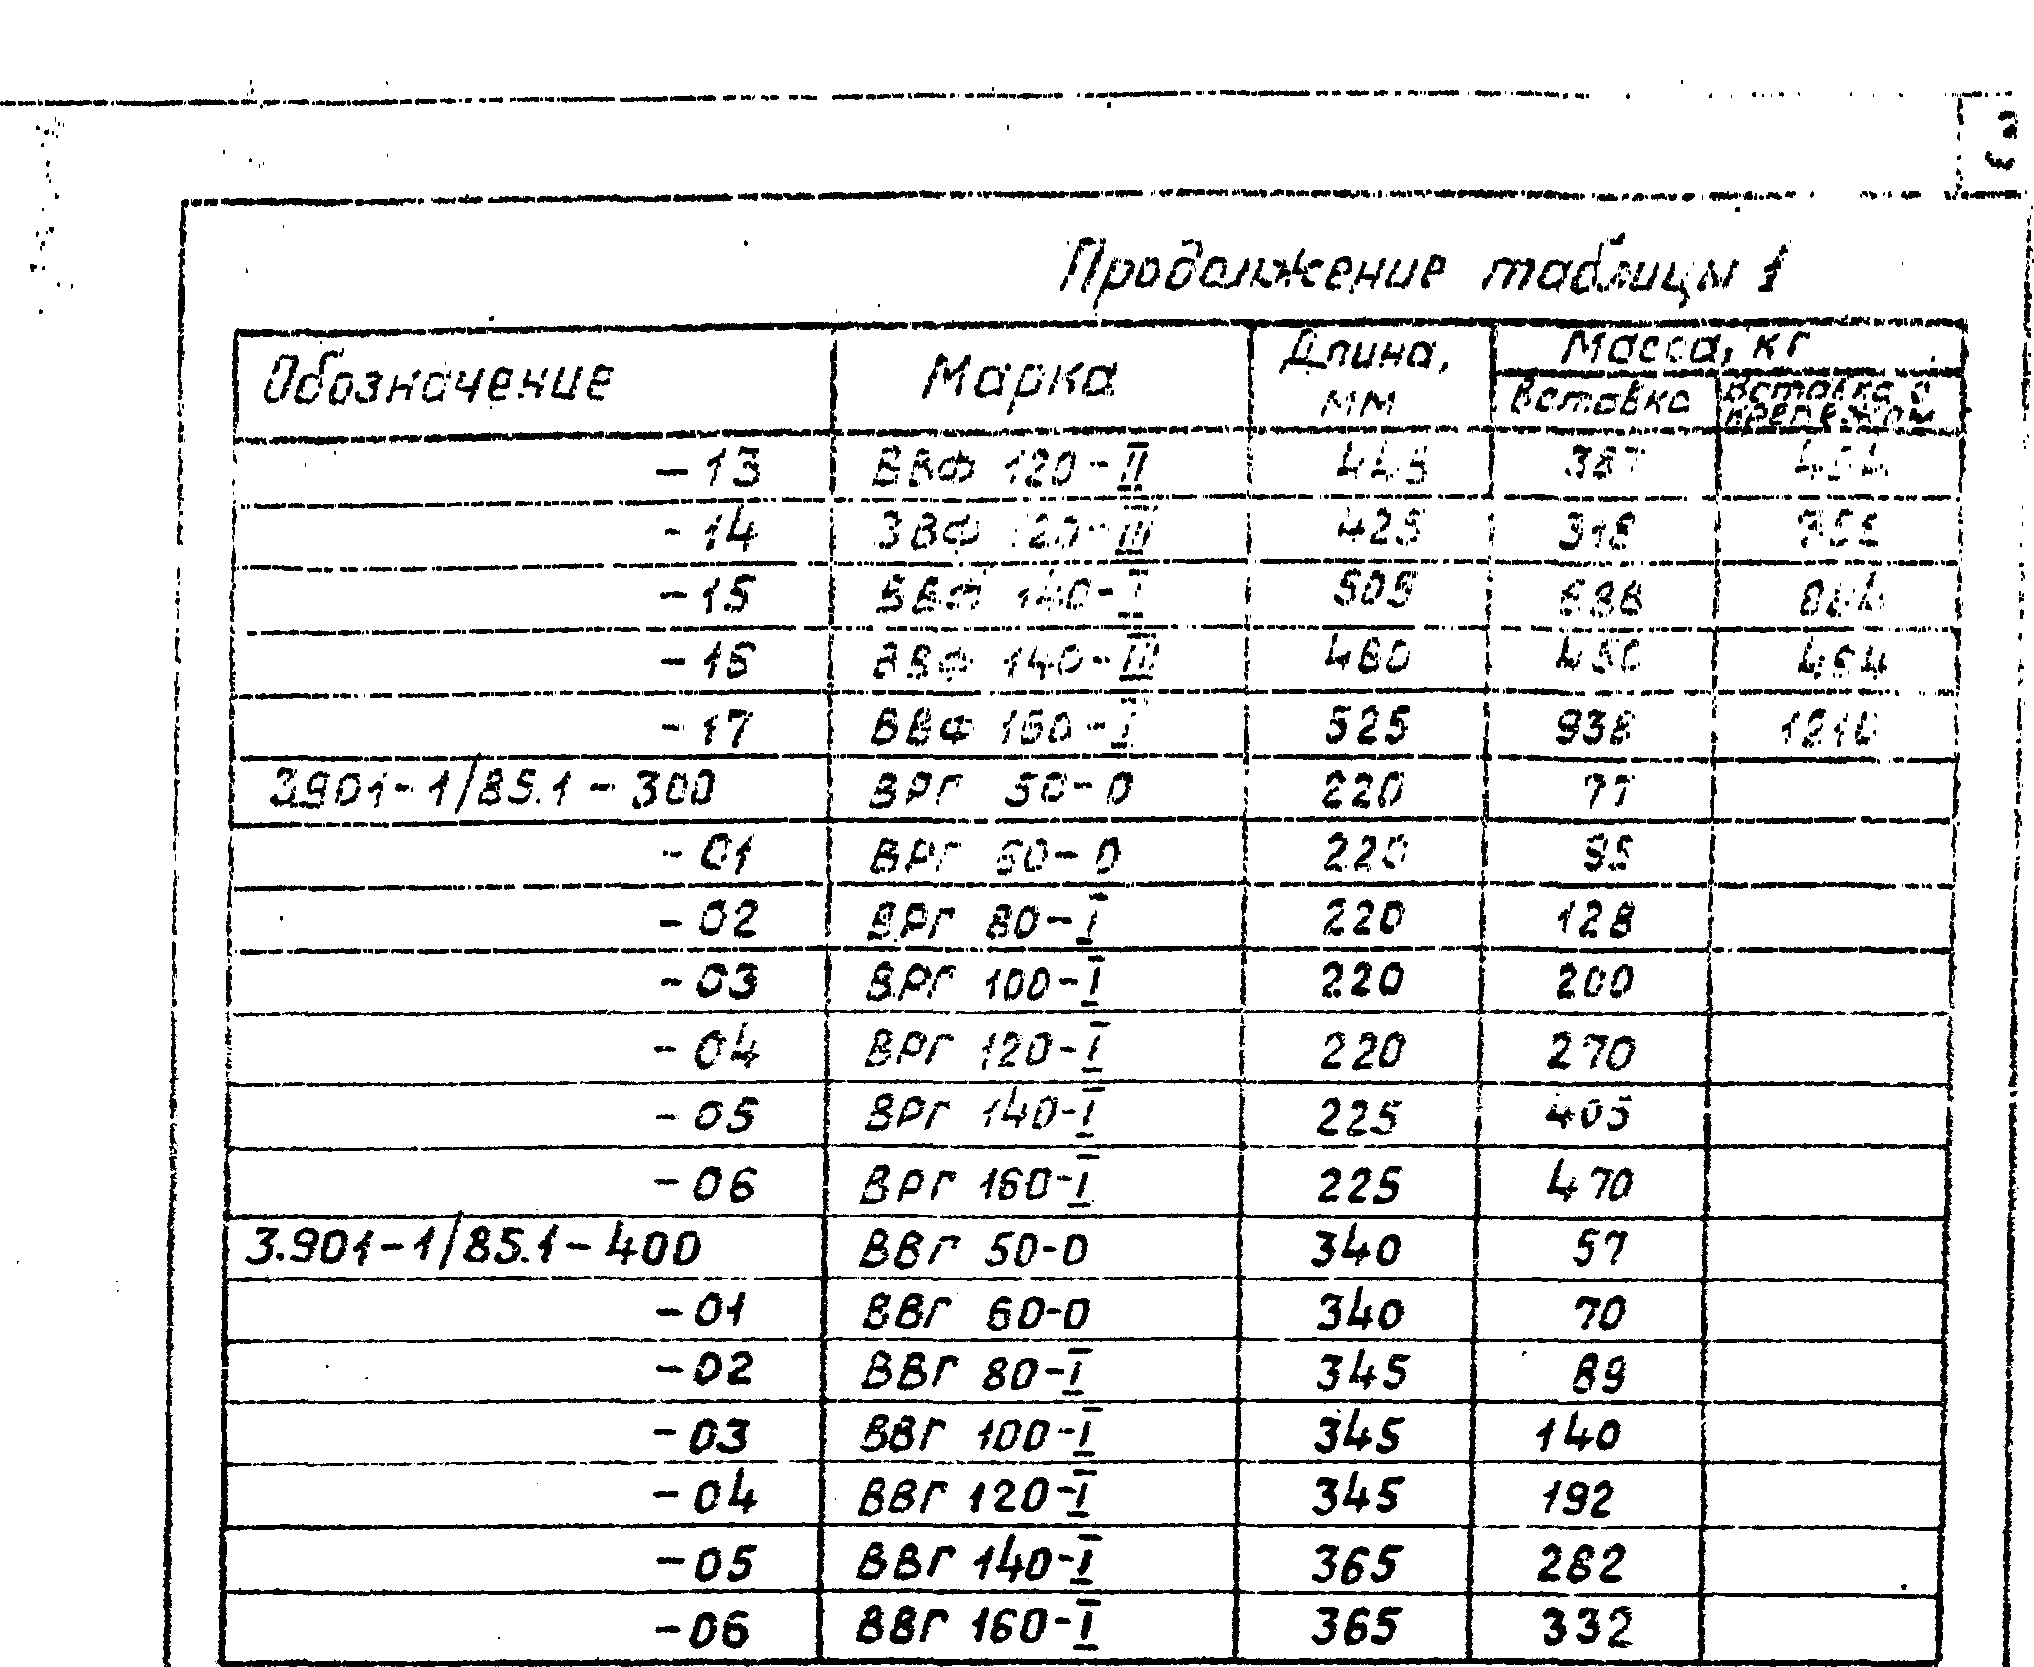 Продолжение таблицы 1
Обозначение Марка Длина, мм Масса, кг
вставка вставка с крепежом
-13 ВВФ 120-II 445 387
-14 ВВФ 120-III 425 318 355
-15 ВВФ 140-I 505 698
-16 ВВФ 140-III 460 450 494
-17 ВВФ 160-I 525 938 1210
3.901-1/85.1-300 ВРГ 50-0 220 77
-01 ВРГ 60-0 220 95
-02 ВРГ 80-I 220 128
-03 ВРГ 100-I 220 200
-04 ВРГ 120-I 220 270
-05 ВРГ 140-I 225 405
-06 ВРГ 160-I 225 470
3.901-1/85.1-400 ВВГ 50-0 340 57
-01 ВВГ 60-0 340 70
-02 ВВГ 80-I 345 89
-03 ВВГ 100-I 345 140
-04 ВВГ 120-I 345 192
-05 ВВГ 140-I 365 282
-06 ВВГ 160-I 365 332